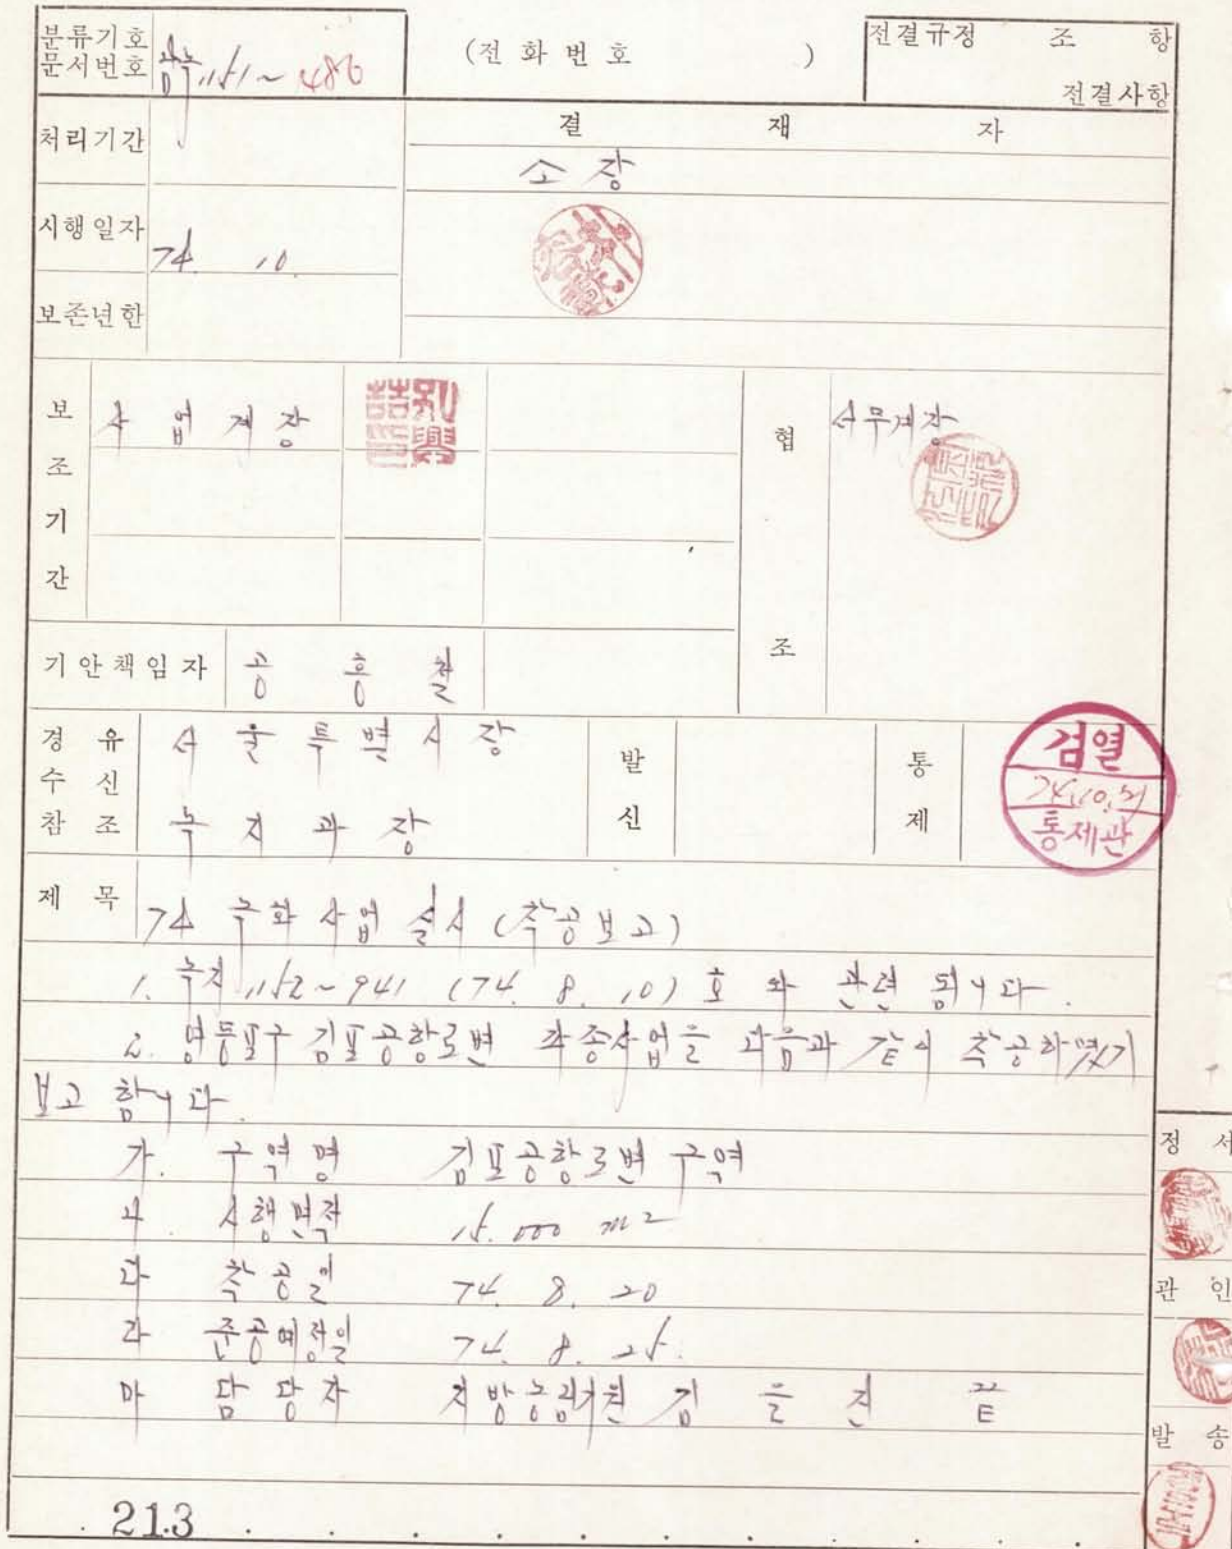 분류기호
문서번호 1151~486
(전화번호 )
전결규정 조 항
전결사항
처리기간
결 재 자
소장
시행일자 74. 10.
보존년한
보조기간
사업계장
협조
서무계장
기안책임자 공흥철
경유
수신 서울특별시장
참조 녹지과장
발신
통제
검열
74.10.21
통제관
제목 74 녹화사업 실시 (착공보고)
1. 녹지 1152~941 (74. 8. 10) 호와 관련 됩니다.
2. 영등포구 김포공항로변 각종사업을 다음과 같이 착공하였기
보고 합니다.
가. 구역명 김포공항로변 구역
나. 시행면적 15.000 m²
다 착공일 74. 8. 20
라 준공예정일 74. 8. 25.
마 담당자 지방농림기원 김을진 끝
정서
관인
발송
213